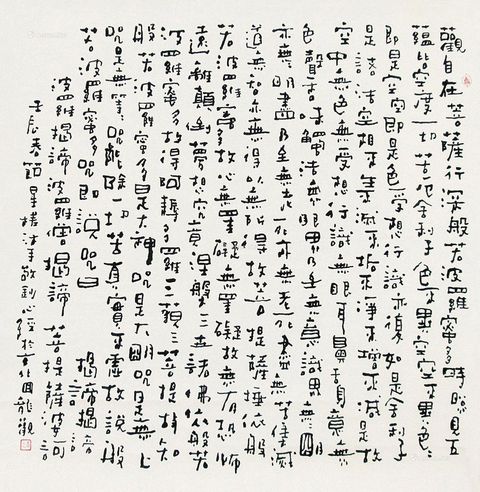 觀自在菩薩行深般若波羅蜜多時照見五
蘊皆空度一切苦厄舍利子色不異空空不異色色
即是空空即是色受想行識亦復如是舍利子
是諸法空相不生不滅不垢不淨不增不減是故
空中無色無受想行識無眼耳鼻舌身意無
色聲香味觸法無眼界乃至無意識界無無明
亦無無明盡乃至無老死亦無老死盡無苦集滅
道無智亦無得以無所得故菩提薩埵依般
若波羅蜜多故心無罣礙無罣礙故無有恐怖
遠離顛倒夢想究竟涅槃三世諸佛依般若
波羅蜜多故得阿耨多羅三藐三菩提故知
般若波羅蜜多是大神咒是大明咒是無上
咒是無等等咒能除一切苦真實不虛故說般
若波羅蜜多咒即說咒曰 揭諦揭諦
波羅揭諦波羅僧揭諦 菩提薩婆訶
壬辰春節星槎敬心經於京北龍觀